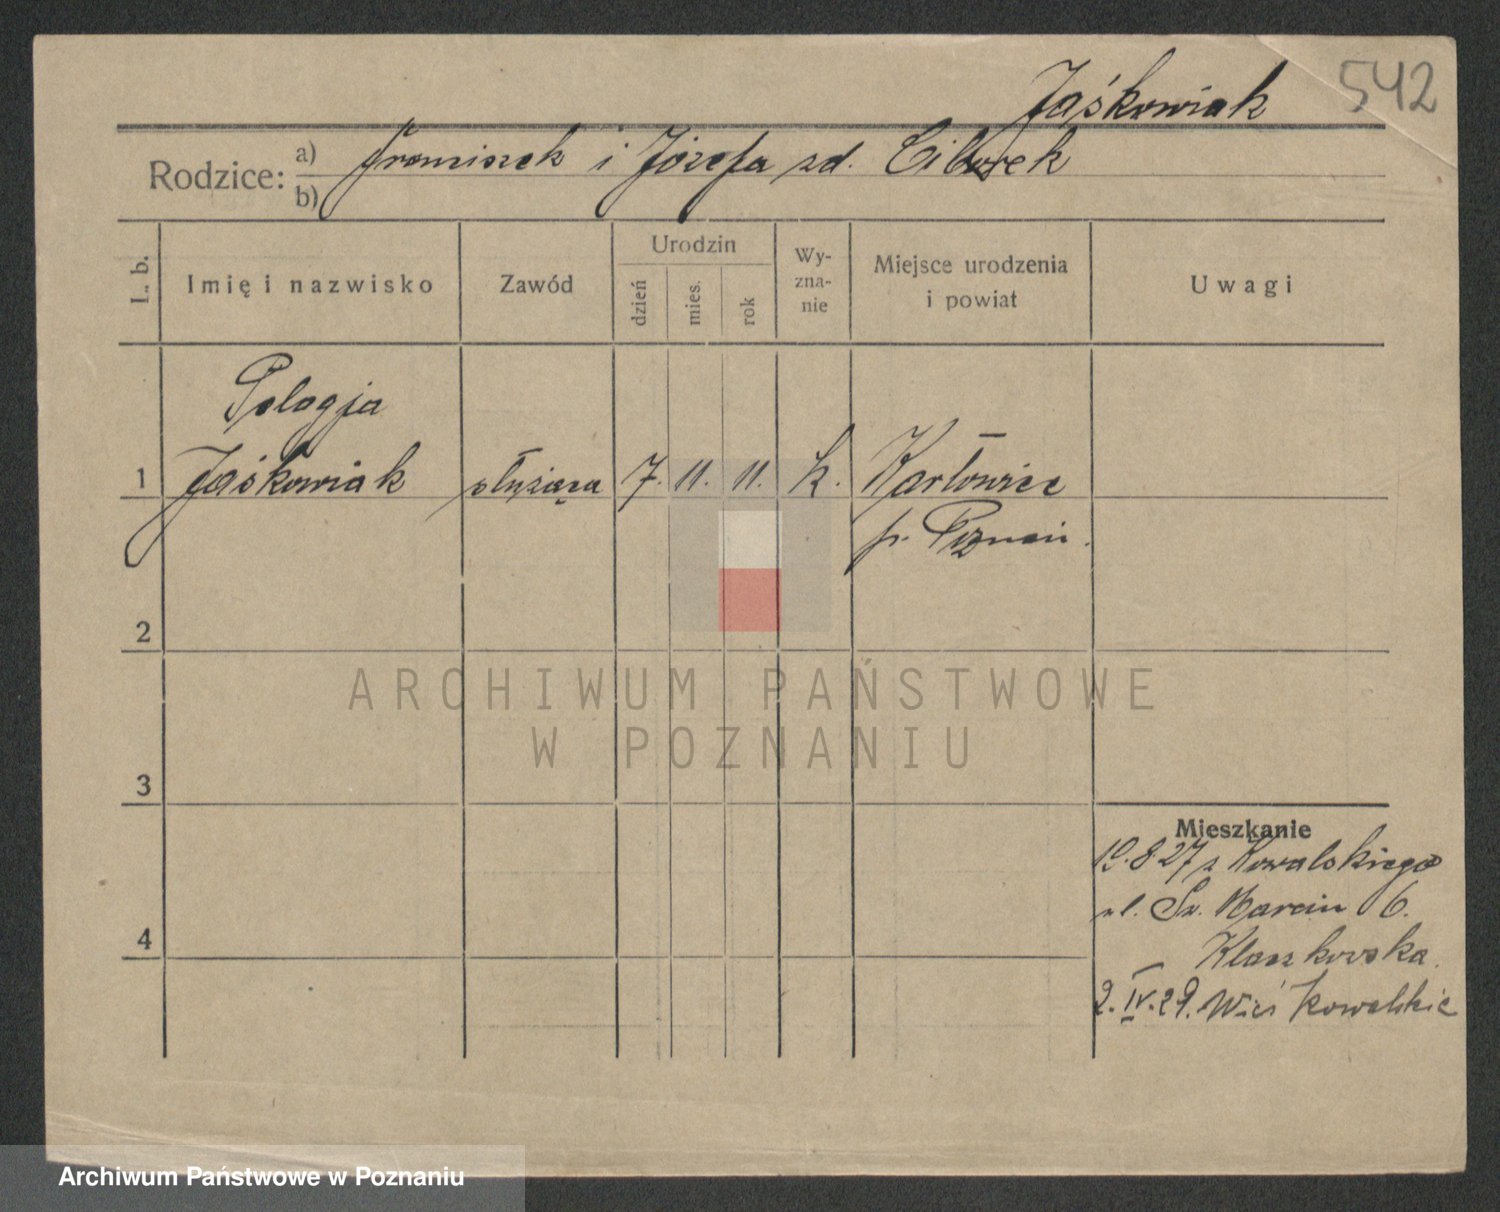 542
Jaśkowiak
Rodzice: a) Franciszek i Józefa zd. Ciborek
b)
L. b.
Imię i nazwisko
Zawód
Urodzin
dzień
mies.
rok
Wy-
zna-
nie
Miejsce urodzenia
i powiat
Uwagi
Pelagja
1 Jaśkowiak służąca 7. 11. 11. k. Karłowice
p. Poznań.
2
ARCHIWUM PAŃSTWOWE
W POZNANIU
3
Mieszkanie
10.8.27 z Kowalskiego
ul. Św. Marcin 6.
4
2.IV.29. Wieś Kowalskie
Archiwum Państwowe w Poznaniu